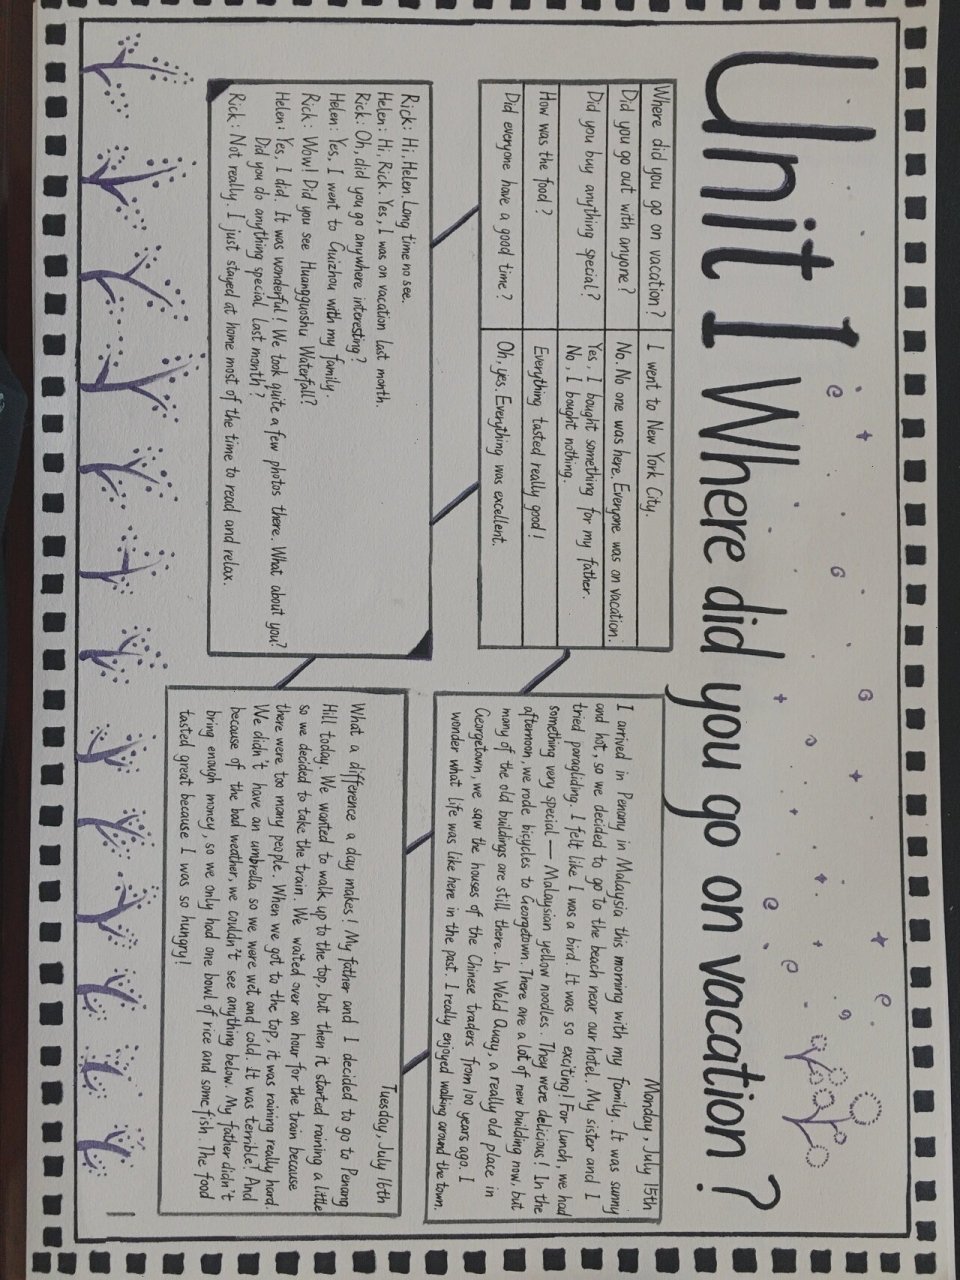 Unit 1 Where did you go on vacation?
Where did you go on vacation? I went to New York City.
Did you go out with anyone? No. No one was here. Everyone was on vacation.
Did you buy anything special? Yes, I bought something for my father.
No, I bought nothing.
How was the food? Everything tasted really good!
Did everyone have a good time? Oh, yes. Everything was excellent.
Rick: Hi, Helen. Long time no see.
Helen: Hi, Rick. Yes, I was on vacation last month.
Rick: Oh, did you go anywhere interesting?
Helen: Yes, I went to Guizhou with my family.
Rick: Wow! Did you see Huangguoshu Waterfall?
Helen: Yes, I did. It was wonderful! We took quite a few photos there. What about you?
Did you do anything special last month?
Rick: Not really. I just stayed at home most of the time to read and relax.
Monday, July 15th
I arrived in Penany in Malaysia this morning with my family. It was sunny
and hot, so we decided to go to the beach near our hotel. My sister and I
tried paragliding. I felt like I was a bird. It was so exciting! For lunch, we had
something very special — Malaysian yellow noodles. They were delicious! In the
afternoon, we rode bicycles to Georgetown. There are a lot of new building now, but
many of the old buildings are still there. In Weld Quay, a really old place in
Georgetown, we saw the houses of the Chinese traders from 100 years ago. I
wonder what life was like here in the past. I really enjoyed walking around the town.
Tuesday, July 16th
What a difference a day makes! My father and I decided to go to Penang
Hill today. We wanted to walk up to the top, but then it started raining a little
so we decided to take the train. We waited over an hour for the train because
there were too many people. When we got to the top, it was raining really hard.
We didn't have an umbrella so we were wet and cold. It was terrible! And
because of the bad weather, we couldn't see anything below. My father didn't
bring enough money, so we only had one bowl of rice and some fish. The food
tasted great because I was so hungry!